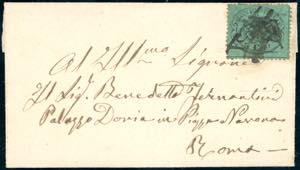 All' Ill.mo Signore
Il Sig. Benedetto Fernandini
Palazzo Doria in Piazza Navona
Roma